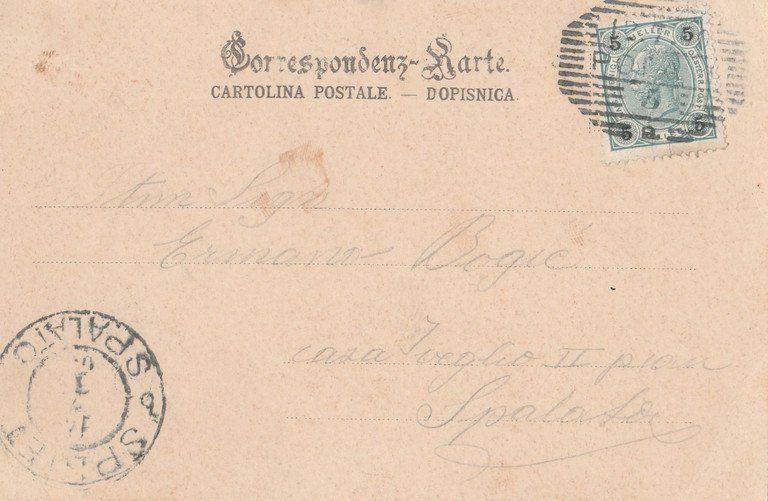 Correspondenz-Karte.
CARTOLINA POSTALE. — DOPISNICA.
5 HELLER 5
5 5
Sign
Ermano Bogić
casa Iveglio II piano
Spalato
SPALATO
SPLJET